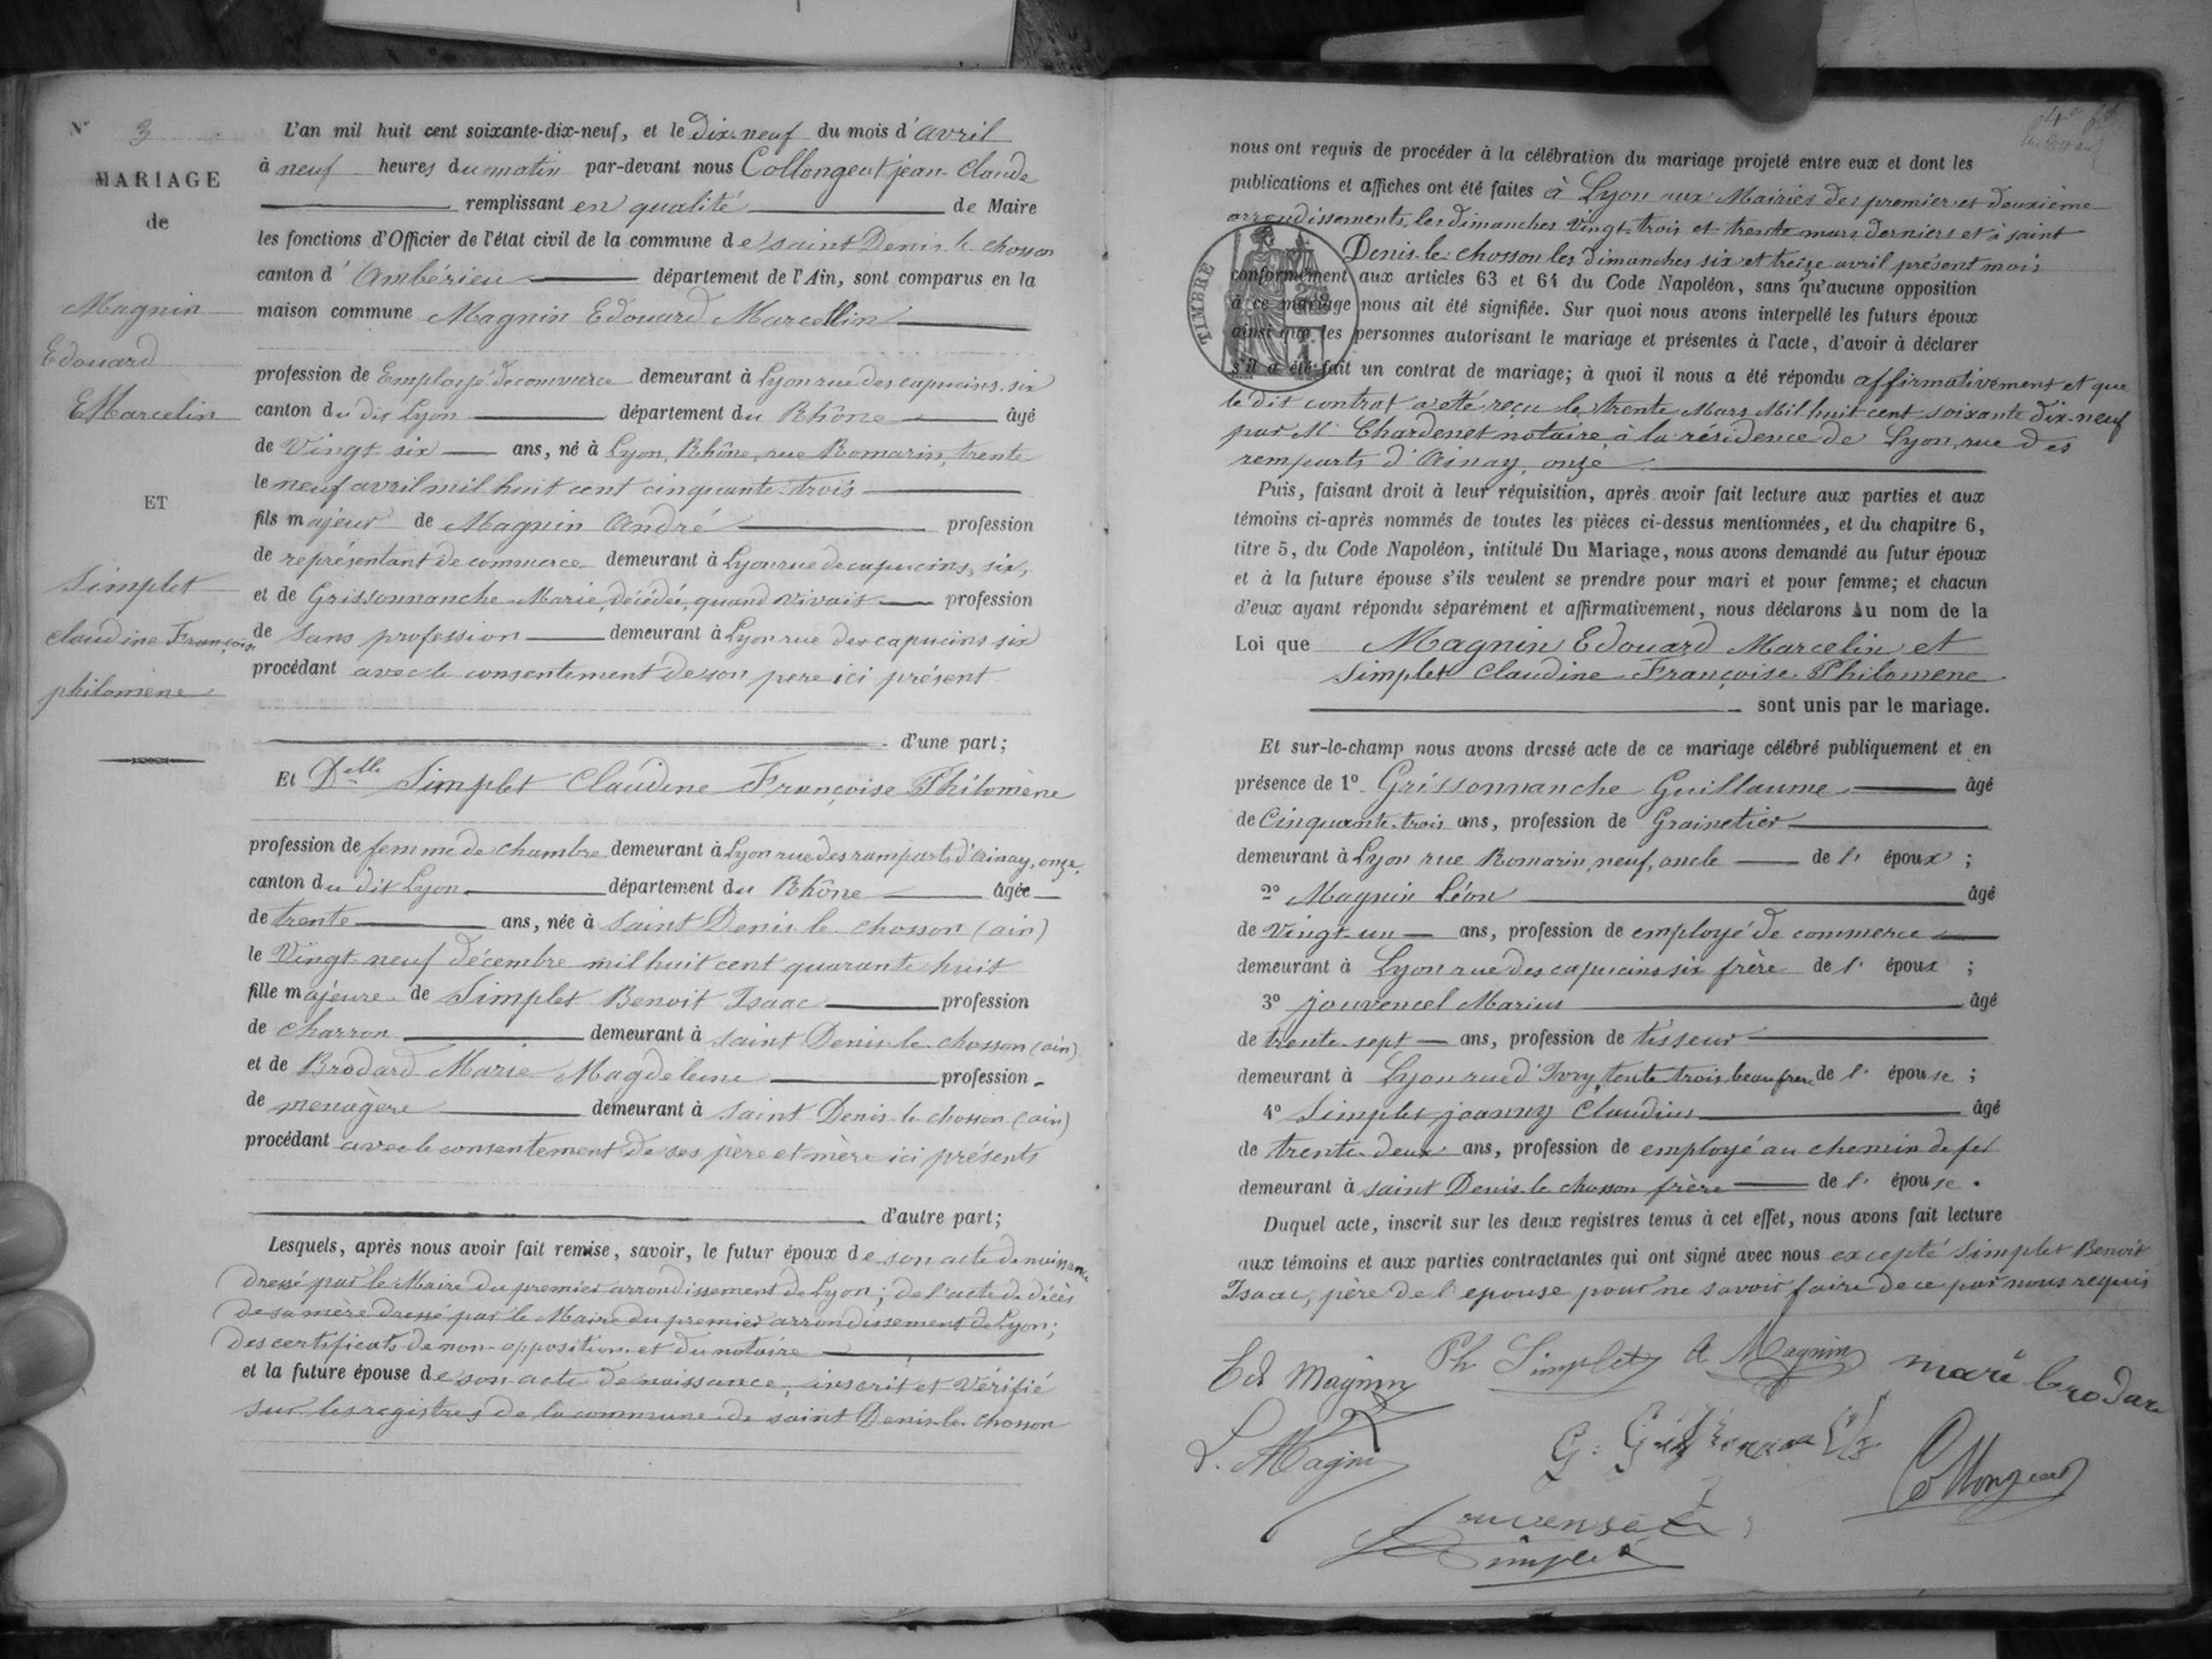 N° 3
MARIAGE
de
Magnin
Edouard
Marcelin
ET
Simplet
claudine Françoise
philomène
L'an mil huit cent soixante-dix-neuf, et le Dix-neuf du mois d'avril
à neuf heures du matin par-devant nous Collongeat jean-Claude
remplissant en qualité de Maire
les fonctions d'Officier de l'état civil de la commune de saint Denis-le-chosson
canton d'Ambérieu département de l'Ain, sont comparus en la
maison commune Magnin Edouard Marcellin
profession de Employé de commerce demeurant à Lyon rue des capucins, six
canton du dit Lyon département du Rhône âgé
de Vingt-six ans, né à Lyon, Rhône, rue Romarin, trente
le neuf avril mil huit cent cinquante-trois
fils majeur de Magnin André profession
de représentant de commerce demeurant à Lyon rue de capucins, six,
et de Grissonnanche Marie, décédée, quand vivait profession
de sans profession demeurant à Lyon rue des capucins six
procédant avec le consentement de son pere ici présent
d'une part;
Et Delle Simplet Claudine Françoise Philomène
profession de femme de chambre demeurant à Lyon rue des ramparts d'Ainay, onze,
canton du dit Lyon département du Rhône âgée
de trente ans, née à saint Denis-le-chosson (ain)
le Vingt-neuf décembre mil huit cent quarante huit
fille majeure de Simplet Benoit Isaac profession
de charron demeurant à saint Denis-le-chosson (ain)
et de Brodard Marie Magdeleine profession
de menagère demeurant à saint Denis-le-chosson (ain)
procédant avec le consentement de ses père et mère ici présents
d'autre part;
Lesquels, après nous avoir fait remise, savoir, le futur époux de son acte de naissance
dressé par le Maire du premier arrondissement de Lyon; de l'acte de décès
de sa mère dressé par le Maire du premier arrondissement de Lyon;
des certificats de non-opposition et du notaire
et la future épouse de son acte de naissance, inscrit et Vérifié
sur les registres de la commune de saint Denis-le-chosson
nous ont requis de procéder à la célébration du mariage projeté entre eux et dont les
publications et affiches ont été faites à Lyon aux Mairies des premier et deuxième
arrondissements, les dimanches vingt-trois et trente mars derniers et à saint
Denis-le-chosson les dimanches six et treize avril présent mois
TIMBRE
conformément aux articles 63 et 64 du Code Napoléon, sans qu'aucune opposition
à ce mariage nous ait été signifiée. Sur quoi nous avons interpellé les futurs époux
ainsi que les personnes autorisant le mariage et présentes à l'acte, d'avoir à déclarer
s'il a été fait un contrat de mariage; à quoi il nous a été répondu affirmativement et que
le dit contrat a été reçu le trente Mars Mil huit cent soixante dix-neuf
par Me Chardenet notaire à la résidence de Lyon, rue des
remparts d'Ainay, onze
Puis, faisant droit à leur réquisition, après avoir fait lecture aux parties et aux
témoins ci-après nommés de toutes les pièces ci-dessus mentionnées, et du chapitre 6,
titre 5, du Code Napoléon, intitulé Du Mariage, nous avons demandé au futur époux
et à la future épouse s'ils veulent se prendre pour mari et pour femme; et chacun
d'eux ayant répondu séparément et affirmativement, nous déclarons Au nom de la
Loi que Magnin Edouard Marcelin et
Simplet Claudine Françoise Philomene
sont unis par le mariage.
Et sur-le-champ nous avons dressé acte de ce mariage célébré publiquement et en
présence de 1° Grissonnanche Guillaume âgé
de Cinquante-trois ans, profession de Grainetier
demeurant à Lyon rue Romarin, neuf, oncle de l'époux;
2° Magnin Léon âgé
de Vingt-un ans, profession de employé de commerce
demeurant à Lyon rue des capucins six frère de l'époux;
3° jouvencel Marius âgé
de trente-sept ans, profession de tisseur
demeurant à Lyon rue d'Ivry, tente-trois beau frere de l'épouse;
4° Simplet joanny Claudius âgé
de trente-deux ans, profession de employé au chemin de fer
demeurant à saint Denis-le-chosson frère de l'épouse.
Duquel acte, inscrit sur les deux registres tenus à cet effet, nous avons fait lecture
aux témoins et aux parties contractantes qui ont signé avec nous excepté Simplet Benoit
Isaac, père de l'epouse pour ne savoir faire de ce par nous requis
Ed Magnin Ph Simplet A Magnin marie brodar
L. Magnin G. Collongeat
Jouvensel
Simplet